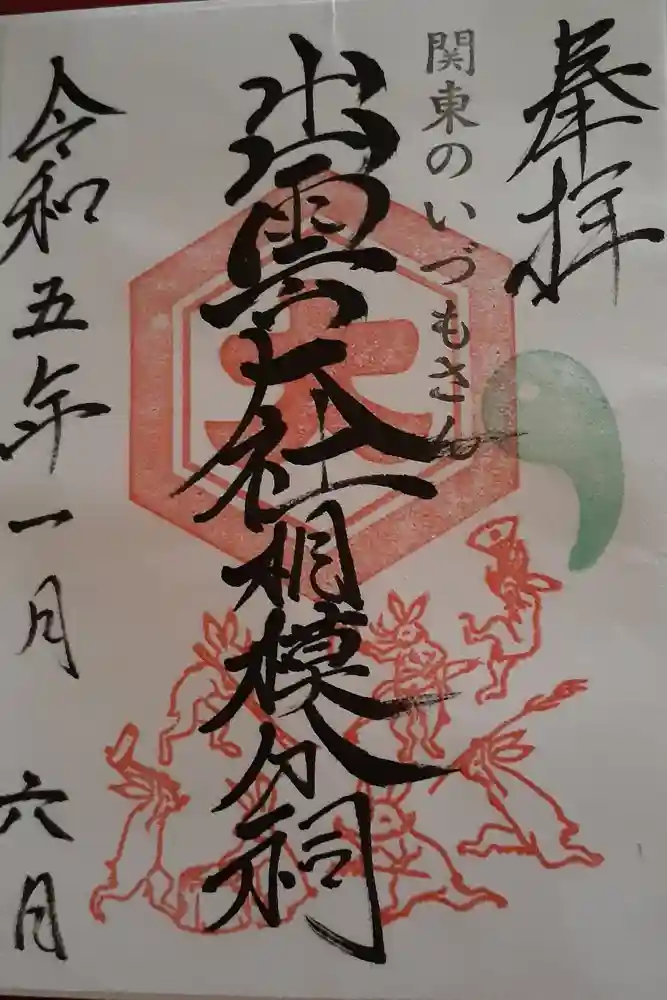 奉拝
関東のいづもさん
出雲大社相模分祠
大
令和五年一月六月